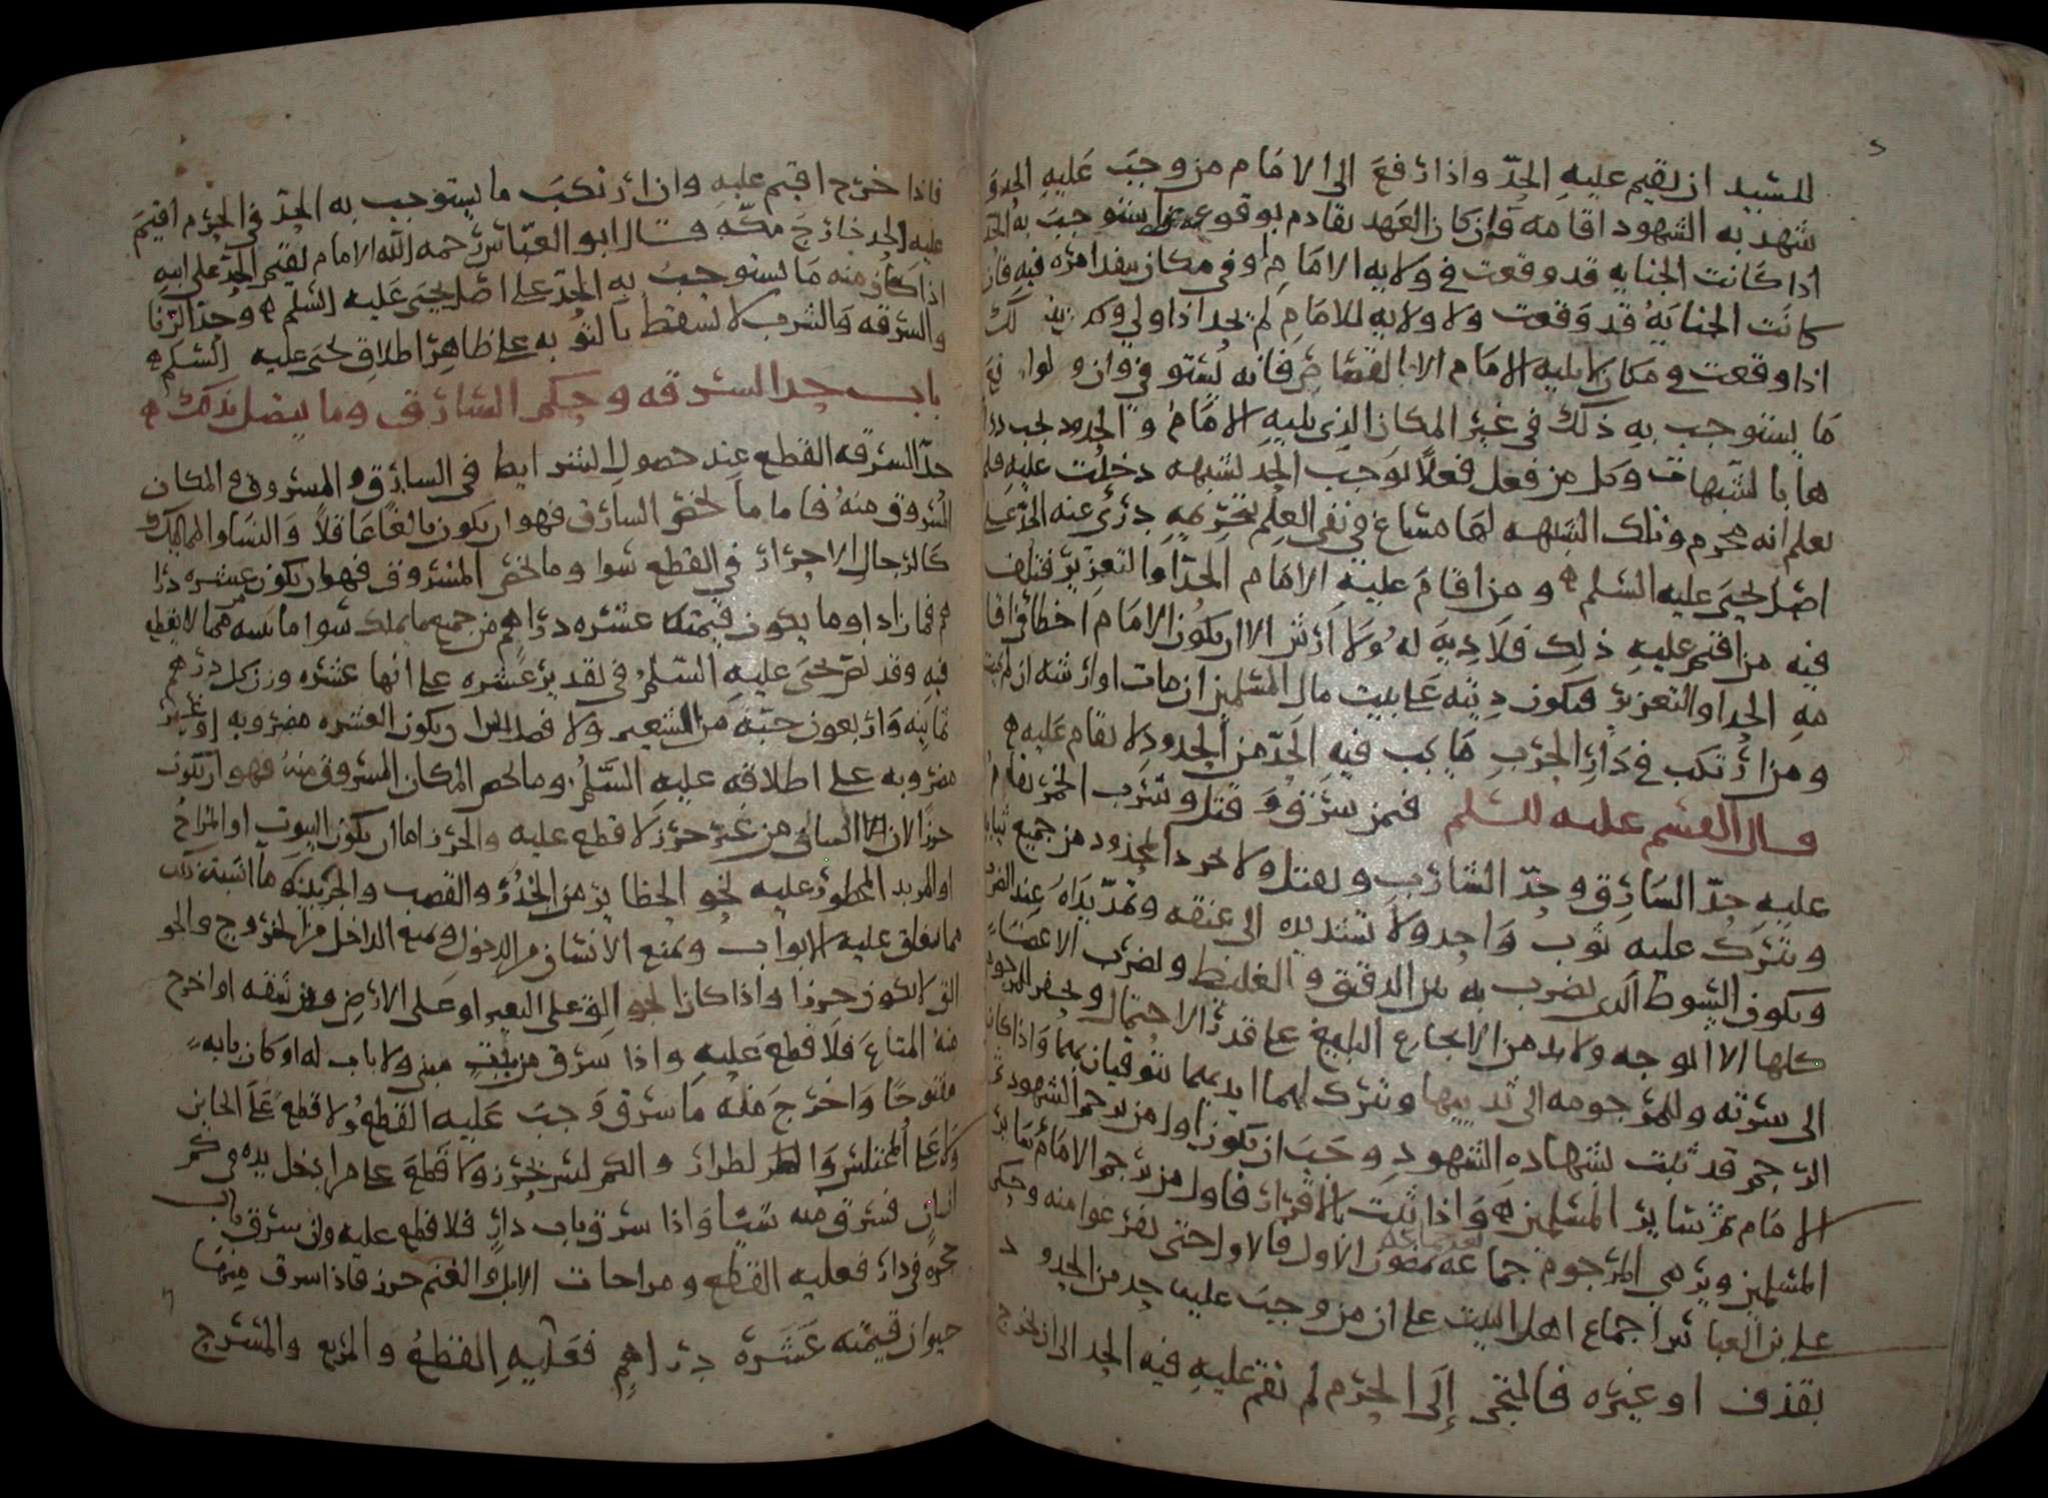 للسيد ان يقيم عليه الحدّ واذا رفع الى الامام من وجب عليه الحد و
شهد به الشهود اقامه فان كان العهد تقادم بوقوع يستوجب به الحد
اذا كانت الجنايه قد وقعت في ولايه الامام او في مكان ينفد امره فيه فان
كانت الجنايه قد وقعت ولا ولايه للامام لم يحد اذا ولي وكذلك
اذا وقعت في مكان لا يليه الامام الا القصاص فانه يستوفي وان
ما يستوجب به ذلك في غير المكان الذي يليه الامام والحدود يجب درا
ها بالشبهات وكل من فعل فعلا يوجب الحد لشبهه دخلت عليه فلم
يعلم انه محرم وتلك الشبهه لها مساغ في نفي العلم بتحريمه درئ عنه الحد على
اصل يحيى عليه السلم ه ومن اقام عليه الامام الحدّ او التعزير فتلف
فيه من اقيم عليه ذلك فلا ديه له ولا ارش الا ان يكون الامام اخطا في اقا
مه الحد او التعزير فتكون ديته على بيت مال المسلمين ان مات او ارشه ان لم يمت
ومن ارتكب في دار الحرب ما يجب فيه الحدّ من الحدود لا يقام عليه ه
قال القسم عليه السلم فمن سرق وقتل وشرب الخمر يقام
عليه حدّ السارق وحدّ الشارب ويقتل ولا يجرد المحدود من جميع ثيابه
ويترك عليه ثوب واحد ولا تشد يده الى عنقه وتمدّ يداه عند الضرب
ويكون السوط الذي يضرب به بين الدقيق والغليظ ويضرب الاعضاء
كلها الا الوجه ولا بد من الايجاع البليغ على قدر الاحتمال ويحفر للمرجوم
الى سرته وللمرجومه الى ثدييها ويترك لهما ايديهما يتوقيان بهما واذا كان
الرجم قد ثبت بشهاده الشهود وجب ان يكون اول من يرجم الشهود ثم
الامام ثم سائر المسلمين ه واذا ثبت بالاقرار فاول من يرجم الامام ثم سائر
المسلمين ويرمي المرجوم جماعه الاول فالاول حتى يفرغوا منه وحكى
علي بن العباس اجماع اهل البيت على ان من وجب عليه حد من الحدود
بقذف او غيره فالتجى إلى الحرم لم يقم عليه فيه الحد الى ان يخرج
فاذا خرج اقيم عليه وان ارتكب ما يستوجب به الحدّ في الحرم اقيم
عليه الحد خارج مكّه قال ابو العبّاس رحمه الله الامام يقيم الحدّ على ابيه
اذا كان منه ما يستوجب به الحدّ على اصل يحيى عليه السلم ه وحدّ الزنا
والسرقه والشرب لا يسقط بالتوبه على ظاهر اطلاق يحيى عليه السلم ه
باب حد السرقه وحكم السارق وما يتصل بذلك ه
حدّ السرقه القطع عند حصول الشرايط في السارق والمسروق والمكان
المسروق منه فاما ما يخص السارق فهو ان يكون بالغا عاقلا والنسا والمماليك
كالرجال الاحرار في القطع سوا وما يخص المسروق فهو ان يكون عشره درا
هم فما زاد او ما يكون قيمته عشره دراهم من جميع ما يملك سوا ما نبينه مما لا يقطع
فيه وقد نص يحيى عليه السلم في تقدير عشره على انها عشره وزن كل درهم
ثمانيه واربعون حبّه من الشعير ولا فصل بين ان يكون العشره مضروبه او غير
مضروبه على اطلاقه عليه السّلم وما يخص المكان المسروق منه فهو ان يكون
حرزا لان السارق من غير حرز لا قطع عليه والحرز اما ان يكون البيوت او المراح
او المربد المحظور عليه نحو الحظاير من الجُدُر والقصب والجريد وما اشبه ذلك
مما يغلق عليه الابواب ويمنع الانسان من الدخول ويمنع الداخل من الخروج والجو
الق لا يكون حرزا واذا كان نحو الق على البعير او على الارض ومن شقه او اخرج
منه المتاع فلا قطع عليه واذا سرق من بيت مبني ولا باب له او كان بابه
مفتوحا واخرج منه ما سرق وجب عليه القطع ولا قطع على الخاين
ولا على المختلس والطرار والكم ليس بحرز ولا قطع على من ادخل يده في كم
انسان فسرق منه شيئا واذا سرق باب دار فلا قطع عليه وان سرق باب
حجره في دار فعليه القطع ومراحات الابل والغنم حرز فاذا سرق منها
حيوان قيمته عشره دراهم فعليه القطع والمربع والمسرج